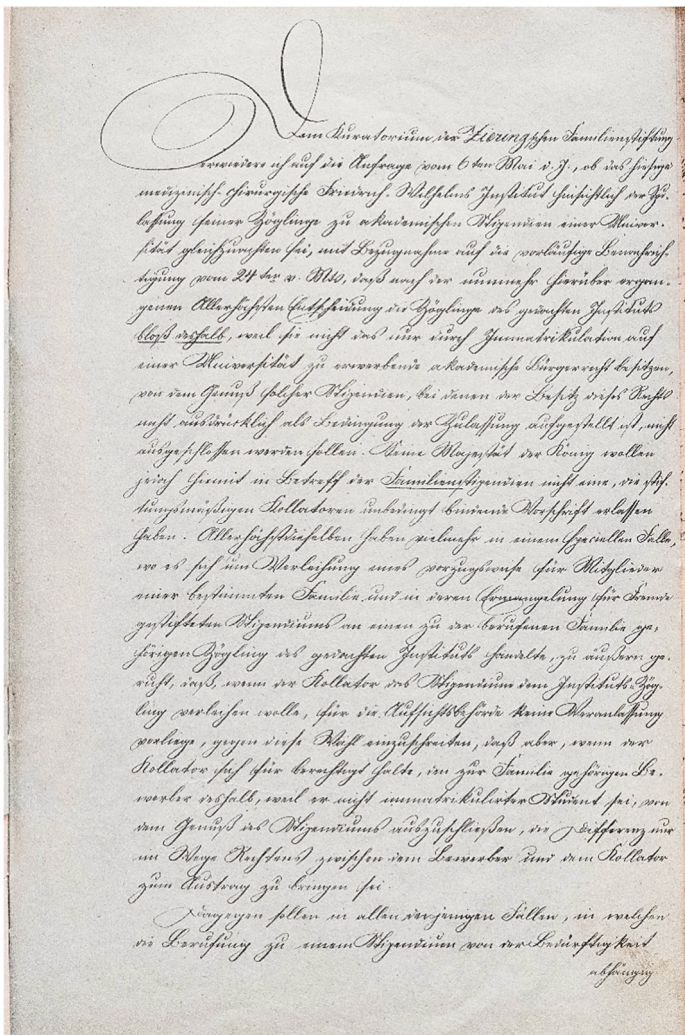 Dem Kuratorium der Ziering'schen Familienstiftung
erwidere ich auf die Anfrage vom 6ten Mai d. J., ob das hiesige
medizinisch-chirurgische Friedrich-Wilhelms Institut hinsichtlich der Zu-
lassung seiner Zöglinge zu akademischen Stipendien einer Univer-
sität gleichzuachten sei, mit Bezugnahme auf die vorläufige Benachrich-
tigung vom 24ten v. Mts, daß nach der nunmehr hierüber ergan-
genen Allerhöchsten Entscheidung die Zöglinge des gedachten Instituts
bloß deshalb, weil sie nicht das nur durch Immatrikulation auf
einer Universität zu erwerbende akademische Bürgerrecht besitzen,
von dem Genuß solcher Stipendien, bei denen der Besitz dieses Rechts
nicht ausdrücklich als Bedingung der Zulassung aufgestellt ist, nicht
ausgeschlossen werden sollen. Seine Majestät der König wollen
jedoch hiermit in Betreff der Familienstipendien nicht eine, die stif-
tungsmäßigen Kollatoren unbedingt bindende Vorschrift erlassen
haben. Allerhöchstdieselben haben vielmehr in einem speciellen Falle,
wo es sich um Verleihung eines vorzugsweise für Mitglieder
einer bestimmten Familie und in deren Ermangelung für Fremde
gestifteten Stipendiums an einen zu der berufenen Familie ge-
hörigen Zögling des gedachten Instituts handelte, zu äußern ge-
ruht, daß, wenn der Kollator das Stipendium dem Instituts-Zög-
ling verleihen wolle, für die Aufsichtsbehörde keine Veranlassung
vorliege, gegen diese Wahl einzuschreiten, daß aber, wenn der
Kollator sich für berechtigt halte, den zur Familie gehörigen Be-
werber deshalb, weil er nicht immatrikulirter Student sei, von
dem Genuß des Stipendiums auszuschließen, die Differenz nur
im Wege Rechtens zwischen dem Bewerber und dem Kollator
zum Austrag zu bringen sei.
Dagegen sollen in allen denjenigen Fällen, in welchen
die Berufung zu einem Stipendium von der Bedürftigkeit
abhängig